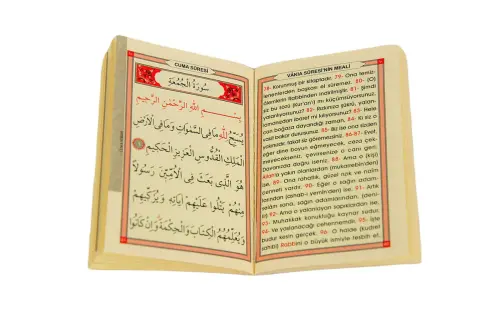 CUMA SÛRESİ
سُورَةُ الْجُمُعَةِ
بِسْمِ اللهِ الرَّحْمٰنِ الرَّحِيمِ
يُسَبِّحُ لِلّٰهِ مَا فِى السَّمٰوَاتِ وَمَا فِى الْاَرْضِ
الْمَلِكِ الْقُدُّوسِ الْعَزِيزِ الْحَكِيمِ
هُوَ الَّذِى بَعَثَ فِى الْاُمِّيّنَ رَسُولاً
مِنْهُمْ يَتْلُوا عَلَيْهِمْ اٰيَاتِهِ وَيُزَكِّيهِمْ
وَيُعَلِّمُهُمُ الْكِتَابَ وَالْحِكْمَةَ وَاِنْ كَانُوا
VÂKIA SÛRESİ'NİN MEALİ
78- Korunmuş bir kitaptadır. 79- Ona temiz-
lenenlerden başkası el süremez. 80- (O)
âlemlerin Rabbinden indirilmiştir. 81- Şimdi
siz bu sözü (Kur'an'ı) mı küçümsüyorsunuz,
yalanlıyorsunuz? 82- Rızkınıza şükrü, yalan-
lamanızdan ibaret mi kılıyorsunuz? 83- Hele
can boğaza dayandığı zaman, 84- Ki siz o
vakit bakar durursunuz. 85- Biz ise ona sizden
yakınızdır, fakat siz görmezsiniz. 86-87- Evet,
eğer dine boyun eğmeyecek, ceza çek-
meyecekseniz, çevirsenize o canı geri,
davanızda doğru iseniz. 88- Ama o (kişi)
Allah'a yakın olanlardan (mukarrebinden)
ise, 89- Ona rahatlık, güzel rızık ve naîm
cenneti vardır. 90- Eğer o sağın adam-
larından (ashab-ı yeminden) ise, 91- Artık
selâm sana, sağın adamlarından. (denir)
92- Ama o yalanlayan sapıklardan ise,
93- Muhakkak konukluğu kaynar sudur.
94- Ve yaslanacağı cehennemdir. 95- İşte
budur kesin gerçek. 96- O halde (kudret
sahibi) Rabbini o büyük ismiyle tesbih et.